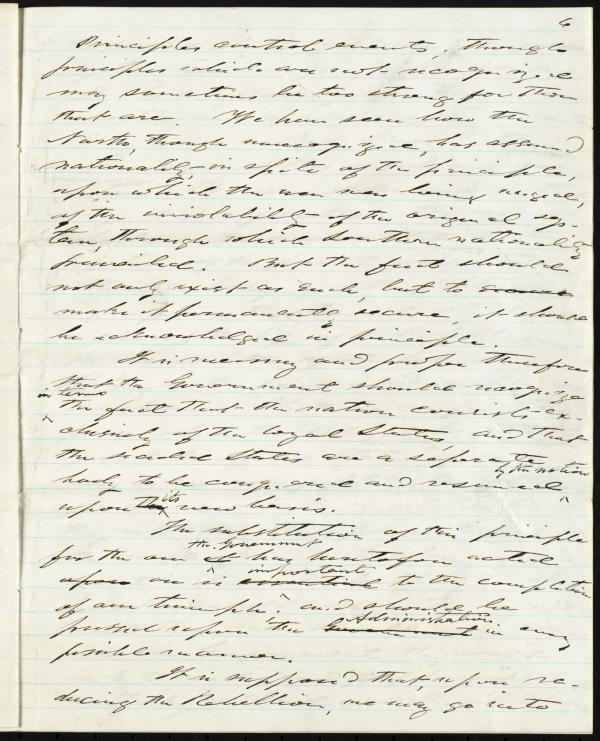 6
Principles control events, though
principles which are not recognized
may sometimes be too strong for those
that are. We have seen how the
North, though unrecognized, has assumed
nationality in spite of the principle,
upon which the war was being waged,
of the inviolability of the original sys-
tem, through which Southern nationality
prevailed. But the fact should
not only exist as such, but to
make it permanently secure, it should
be acknowledged in principle.
It is necessary and proper therefore
that the Government should recognize
in terms
the fact that the nation consists ex-
clusively of the loyal States, and that
the seceded States are a separate
by the nation
body to be conquered and resumed
its
upon the new basis.
The substitution of this principle
the Government
for the one has heretofore acted
important
upon on is essential to the completion
of our triumph, and should be
Administration
pressed upon the Government in every
possible manner.
It is supposed that, upon re-
ducing the Rebellion, we may go into